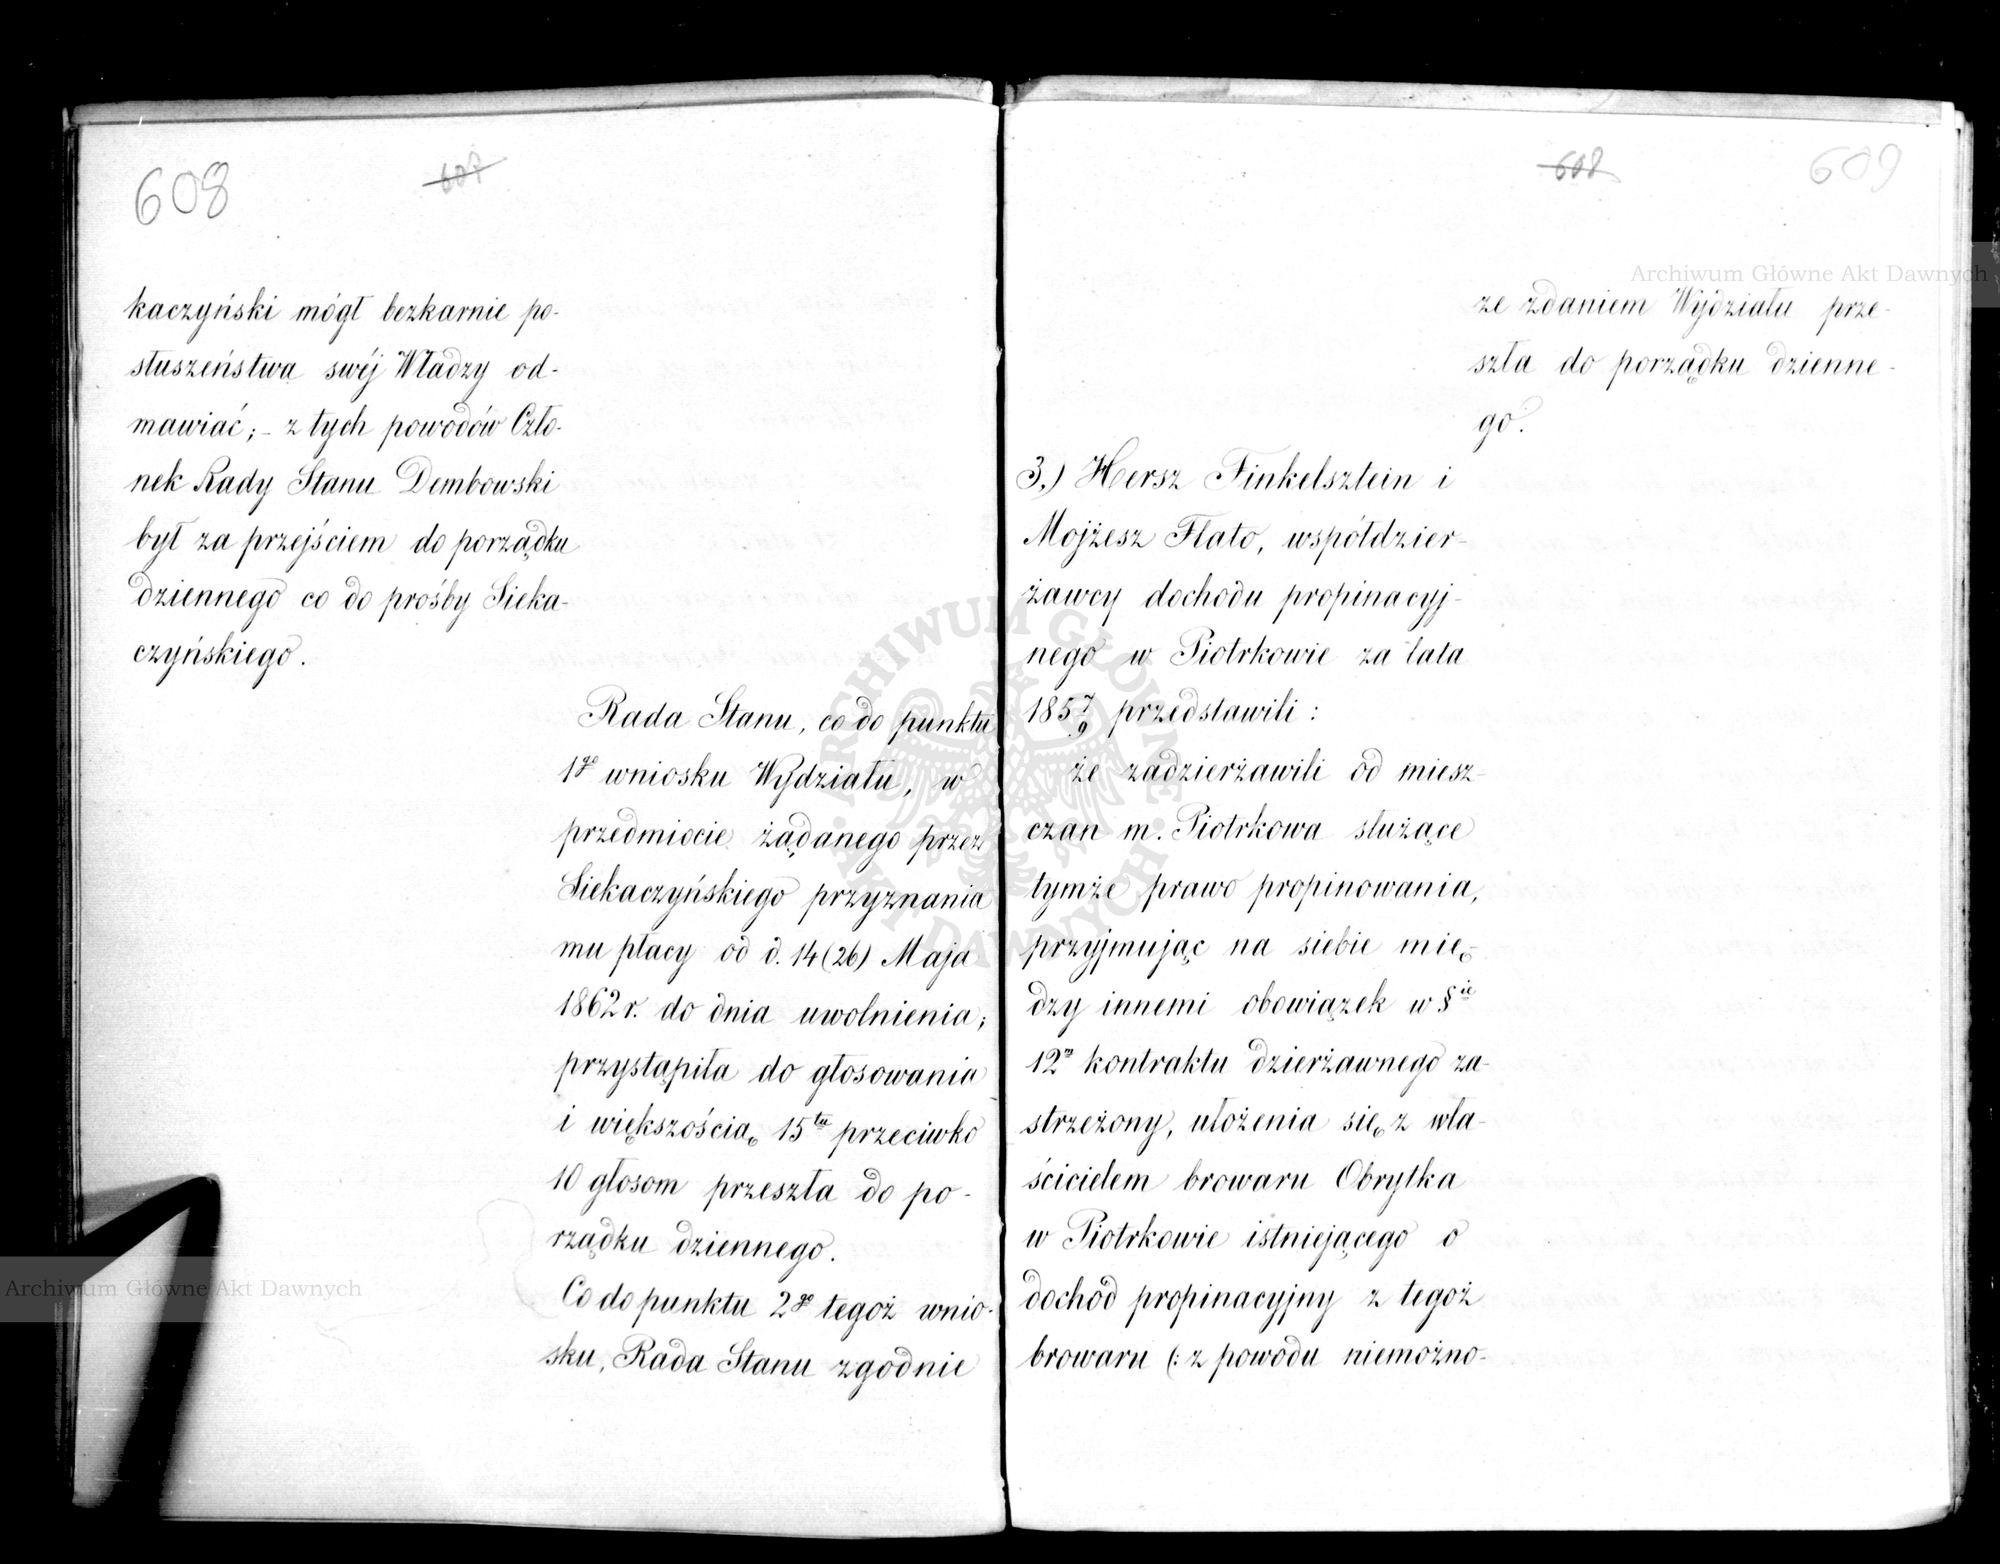 608
607
kaczyński mógł bezkarnie po-
słuszeństwa swéj Władzy od-
mawiać; - z tych powodów Czło-
nek Rady Stanu Dembowski
był za przejściem do porządku
dziennego co do prośby Sieka-
czyńskiego.
Rada Stanu, co do punktu
1go wniosku Wydziału, w
przedmiocie żądanego przez
Siekaczyńskiego przyznania
mu płacy od d. 14 (26) Maja
1862 r. do dnia uwolnienia;
przystąpiła do głosowania
i większością 15tu przeciwko
10 głosom przeszła do po-
rządku dziennego.
Co do punktu 2go tegoż wnio-
sku, Rada Stanu zgodnie
608
609
ze zdaniem Wydziału prze-
szła do porządku dzienne-
go.
3.) Hersz Finkelsztein i
Mojżesz Flato, współdzier-
żawcy dochodu propinacyj-
nego w Piotrkowie za lata
1857/9 przedstawili:
że zadzierżawili od miesz-
czan m. Piotrkowa służące
tymże prawo propinowania,
przyjmując na siebie mię-
dzy innemi obowiązek w §ie
12m kontraktu dzierżawnego za-
strzeżony, ułożenia się z wła-
ścicielem browaru Obrytka
w Piotrkowie istniejącego o
dochód propinacyjny z tegoż
browaru (: z powodu niemożno-
Archiwum Główne Akt Dawnych
Archiwum Główne Akt Dawnych
ARCHIWUM GŁÓWNE AKT DAWNYCH